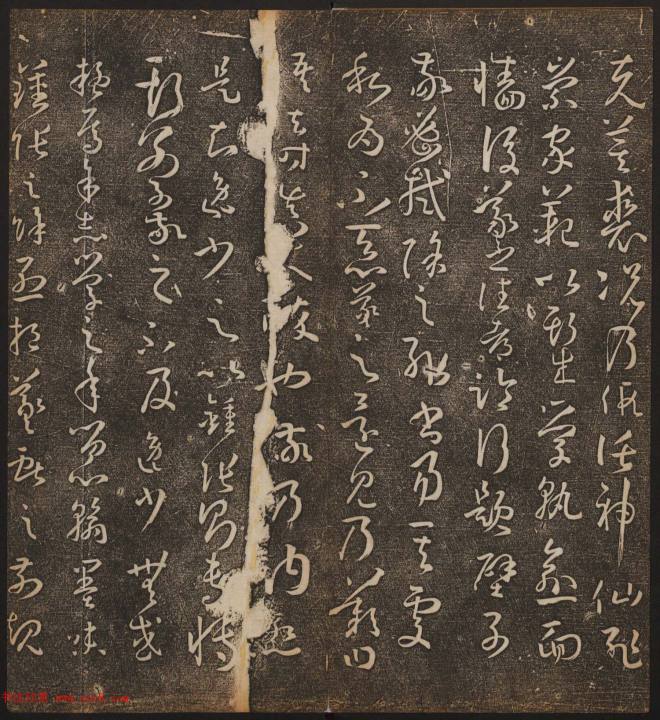 克箕裘況乃假託神仙耻
崇家範以斯成學孰愈面
墻後羲之往都臨行題壁子
敬密拭除之輒書易其處
私為不惡羲之還見乃歎曰
吾去時真大醉也敬乃內慙
是知逸少之比鍾張則專博
斯別子敬之不及逸少無或
疑焉余志學之年留心翰墨味
鍾張之餘烈挹羲獻之前規
书法欣赏 www.yac8.com